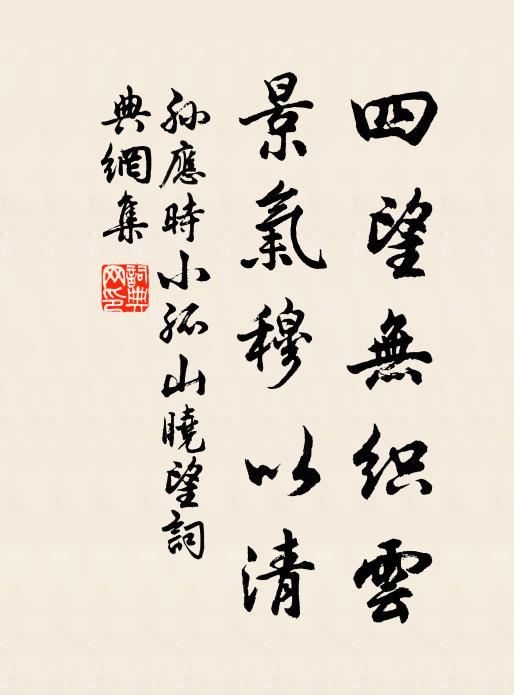 四望無織雲
景氣穆以清
孫應時小孤山曉望詞
典網集
詞典
网印